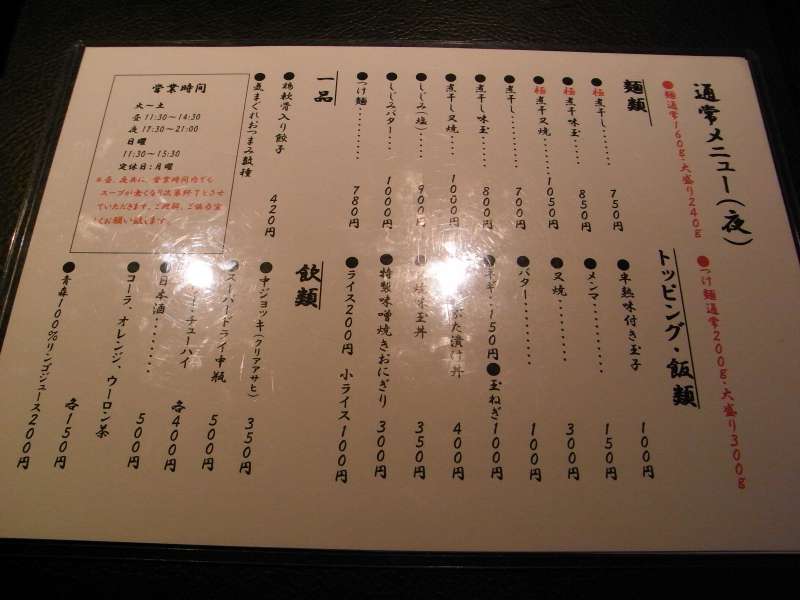 通常メニュー(夜)
●麺通常160g・大盛り240g
●つけ麺通常200g・大盛り300g
麺類
●極煮干し………… 750円
●極煮干味玉……… 850円
●極煮干叉焼……… 1050円
●煮干し………… 700円
●煮干し味玉……… 800円
●煮干し叉焼……… 1000円
●しじみ(塩)……… 900円
●しじみバター…… 1000円
●つけ麺………… 780円
一品
●鶏軟骨入り餃子 420円
●気まぐれおつまみ数種
営業時間
火〜土
昼 11:30〜14:30
夜 17:30〜21:00
日曜
11:30〜15:30
定休日:月曜
※昼、夜共に、営業時間内でも
スープが無くなり次第終了とさせ
ていただきます。ご理解、ご協力宜
しくお願い致します。
トッピング・飯類
●半熟味付き玉子 100円
●メンマ………… 150円
●叉焼………… 300円
●バター………… 100円
ネギ…150円 ●玉ねぎ100円
ぶた漬け丼 400円
味玉丼 350円
●特製味噌焼きおにぎり 300円
ライス200円 小ライス100円
飲類
●中ジョッキ(クリアアサヒ) 350円
スーパードライ中瓶 500円
・チューハイ 各400円
●日本酒………… 500円
●コーラ、オレンジ、ウーロン茶 各150円
●青森100%リンゴジュース200円